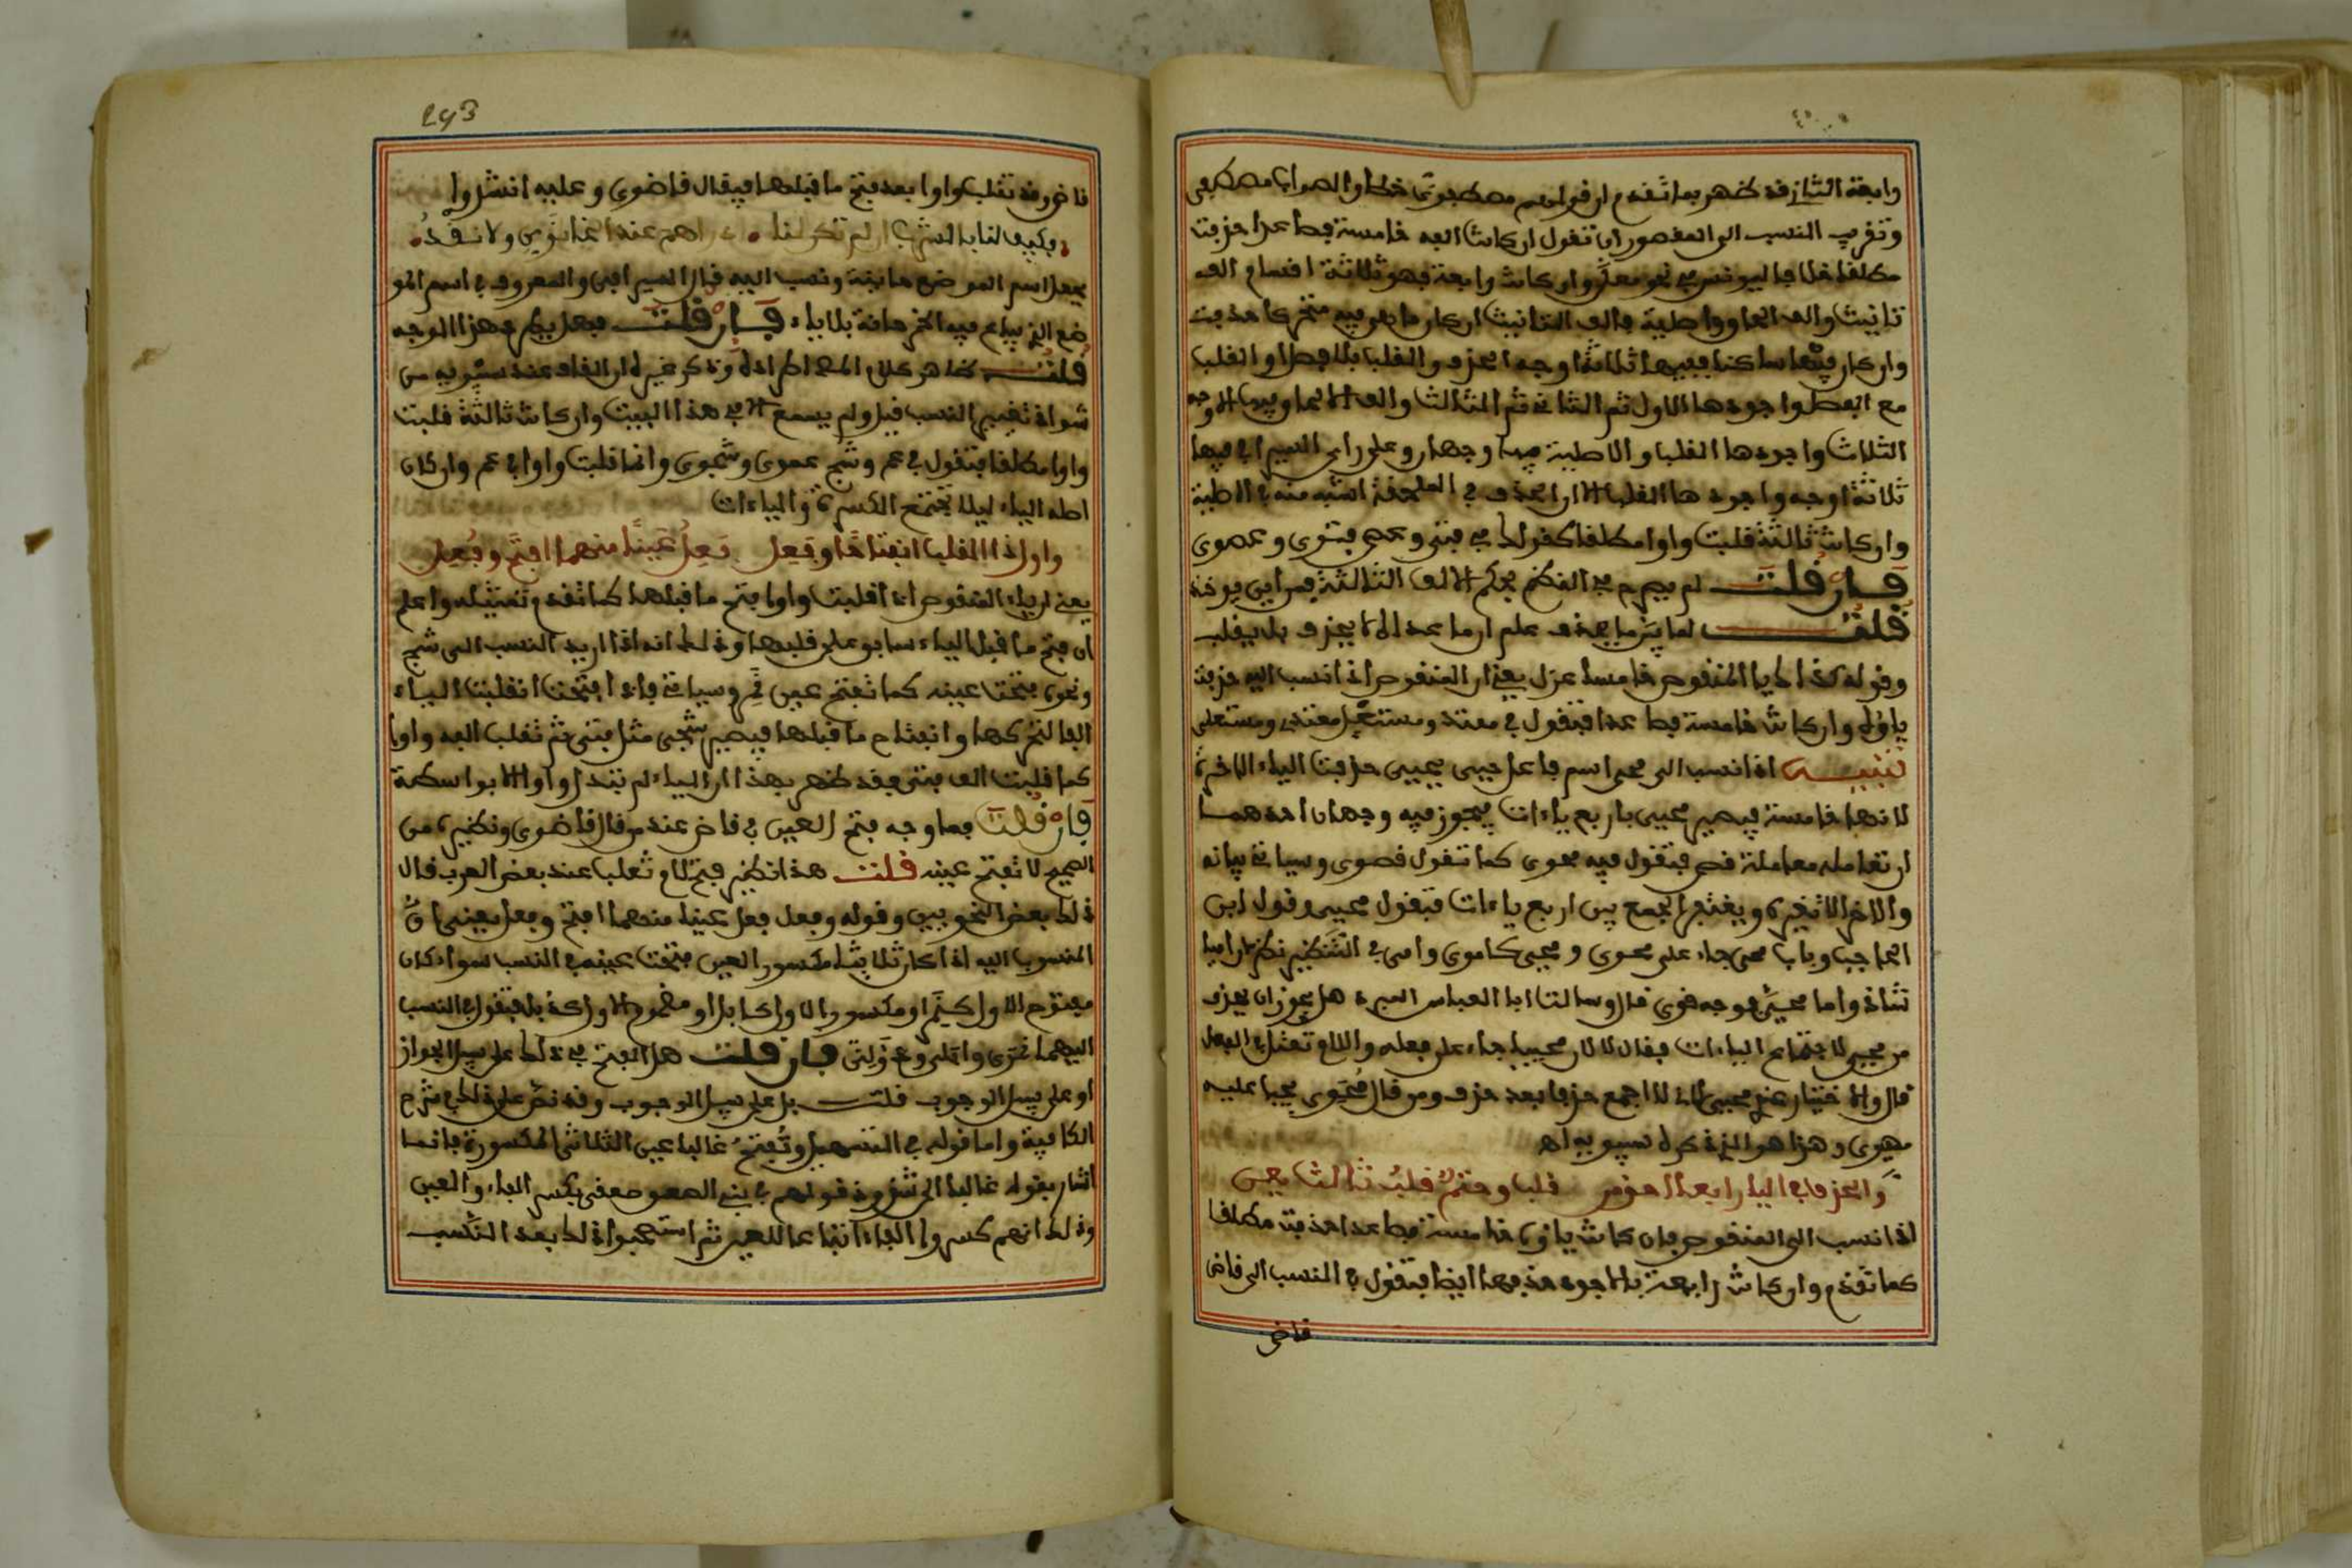 وابعة الثان فد ظهر بما تفدم ان فولهم مصطفوى خطا والصواب مصطفى
وتفريب النسب الى المفصور ان تفول ان كانت العه خامسة فصاعدا حذفت
مطلفا خلافا ليونس في نحو معلى وان كانت رابعة فهو ثلاثة افسام الف
تانيث والف الحاق واصلية فالف التانيث ان كان ما هى فيه متحركا حذفت
وان كان ساكنا ففيها ثلاثة اوجه الحذف والفلب بلا فصل والفلب
مع الفصل واجودها الاول ثم الثانى ثم الثالث والف الالحاق فيها الاوجه
الثلاث واجودها الفلب والاصلية فيها وجهان وعلى راى السيرافى فيها
ثلاثة اوجه واجودها الفلب الا ان الحذف في الملحفة اشبه منه في الاصلية
وان كانت ثالثة فلبت واوا مطلفا كفولك في فتى وعصى فتوى وعصوى
فان فلت لم يصرح في النظم بحكم الالف الثالثة فمن اين يوخذ
فلت لما بين ما يحذف علم ان ما عداه لا يحذف بل يفلب
وفوله كذاك يا المنفوص خامسا عزل يعنى ان المنفوص اذا نسب اليه حذفت
ياؤه ان كانت خامسة فصاعدا فتفول في معتد ومستعل معتدى ومستعلى
تنبيه اذا نسب الى محى اسم فاعل حيى يحيى حذفت الياء الاخيرة
لانها خامسة فيصير محيى باربع ياءات فيجوز فيه وجهان احدهما
ان تعامله معاملة فصى فتفول فيه محوى كما تفول فصوى وسياتى بيانه
والاخر الا تغيره ويغتفر الجمع بين اربع ياءات فتفول محيى وفول ابن
الحاجب وباب محى جاء على محوى و محيى كاموى وامى في التنظير نظر لان اميا
شاذ واما محيى فوجه فوى فال وسالت ابا العباس المبرد هل يجوز ان يحذف
من محيى لاجتماع الياءات ففال لا لان محييا جاء على فعله واللام تعتل في الفعل
فال والاختيار عندى محيى لانى لا اجمع حذفا بعد حذف ومن فال محوى يجب عليه
مهيوى وهذا هو الذى ذكره سيبويه اهـ
والحذف في اليا رابعا احق من فلب وحتم فلب ثالث يعن
اذا نسب الى المنفوص فان كانت ياؤه خامسة فصاعدا حذفت مطلفا
كما تفدم وان كانت رابعة فالاجود حذفها ايضا فتفول في النسب الى فاض
فاضى
293
فاضى وفد تفلب واوا بعد فتح ما فبلها فيفال فاضوى وعليه انشدوا
وكيف لنا بالشرب ان لم تكن لنا دراهم عند الحانوى ولا نفد
جعل اسم الموضع حانية ونسب اليه فال السيرافى والمعروف في اسم المو
ضع الذى يباع فيه الخمر حانة بلا ياء فان فلت فهل يطرد هذا الوجه
فلت ظاهر كلام المص اطراده وذكر غيره ان الفلب عند سيبويه من
شواذ تغيير النسب فيل ولم يسمع الا في هذا البيت وان كانت ثالثة فلبت
واوا مطلفا فتفول في عم وشج عموى وشجوى وانما فلبت واوا في عم وان كان
اصله الياء ليلا تجتمع الكسرة والياءات
واول ذا الفلب انفتاحا وفعل وفعل عينهما افتح وفعل
يعنى ان ياء المنفوص اذا فلبت واوا فتح ما فبلها كما تفدم تمثيله واعلم
ان فتح ما فبل الياء سابق على فلبها وذلك انه اذا اريد النسب الى شج
ونحوه فتحت عينه كما تفتح عين نمر وسياتى فاذا افتحت انفلبت الياء
الفا لتحركها وانفتاح ما فبلها فيصير شجى مثل فتى ثم تفلب الفه واوا
كما فلبت الف فتى ففد ظهر بهذا ان الياء لم تبدل واوا الا بواسطة
فان فلت فما وجه فتح العين في فاض عند من فال فاضوى ونظيره من
الصحيح لا تفتح عينه فلت هذا نظير فتح لام تغلب عند بعض العرب فال
ذلك بعض النحويين وفوله وفعل وفعل عينهما افتح وفعل يعنى ان
المنسوب اليه اذا كان ثلاثيا مكسور العين فتحت عينه في النسب سواء كان
مفتوح الاول كنمر او مكسور الاول كابل او مضموم الاول كدئل فتفول في النسب
اليهما نمرى وابلى ودؤلى فان فلت هل الفتح في ذلك على سبيل الجواز
او على سبيل الوجوب فلت بل على سبيل الوجوب وفد نص على ذلك في شرح
الكافية واما فوله في التسهيل وتفتح غالبا عين الثلاثى المكسورة فانما
اشار بفوله غالبا الى شذوذ فولهم في بنى الصعق صعفى بكسر الفاء والعين
وذلك انهم كسروا الفاء اتباعا للعين ثم استصحبوا ذلك بعد النسب